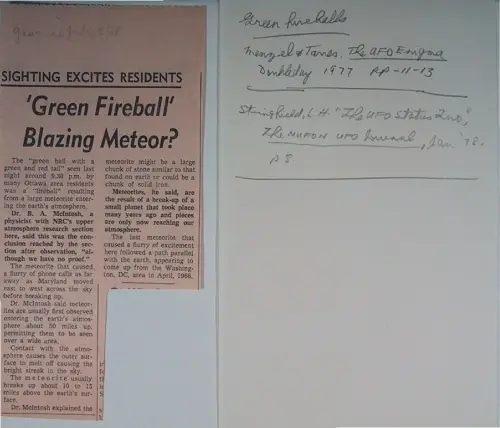 SIGHTING EXCITES RESIDENTS
'Green Fireball'
Blazing Meteor?
The "green ball with a
green and red tail" seen last
night around 5:30 p.m. by
many Ottawa area residents
was a "fireball" resulting
from a large meteorite enter-
ing the earth's atmosphere.
Dr. B. A. McIntosh, a
physicist with NRC's upper
atmosphere research section
here, said this was the con-
clusion reached by the sec-
tion after observation, "al-
though we have no proof."
The meteorite that caused
a flurry of phone calls as far
away as Maryland moved
east to west across the sky
before breaking up.
Dr. McIntosh said meteor-
ites are usually first observed
entering the earth's atmos-
phere about 50 miles up,
permitting them to be seen
over a wide area.
Contact with the atmo-
sphere causes the outer sur-
face to melt off causing the
bright streak in the sky.
The meteorite usually
breaks up about 10 to 15
miles above the earth's sur-
face.
Dr. McIntosh explained the
meteorites might be a large
chunk of stone similar to that
found on earth or could be a
chunk of solid iron.
Meteorites, he said, are
the result of a break-up of a
small planet that took place
many years ago and pieces
are only now reaching our
atmosphere.
The last meteorite that
caused a flurry of excitement
here followed a path parallel
with the earth, appearing to
come up from the Washing-
ton, DC, area in April, 1966.
Green Fireballs
Menzel & Taves. The UFO Enigma
Doubleday 1977 pp-11-13
Stringfield, L.H. "The UFO Status Quo",
The MUFON UFO Journal, Jan '78.
p 8